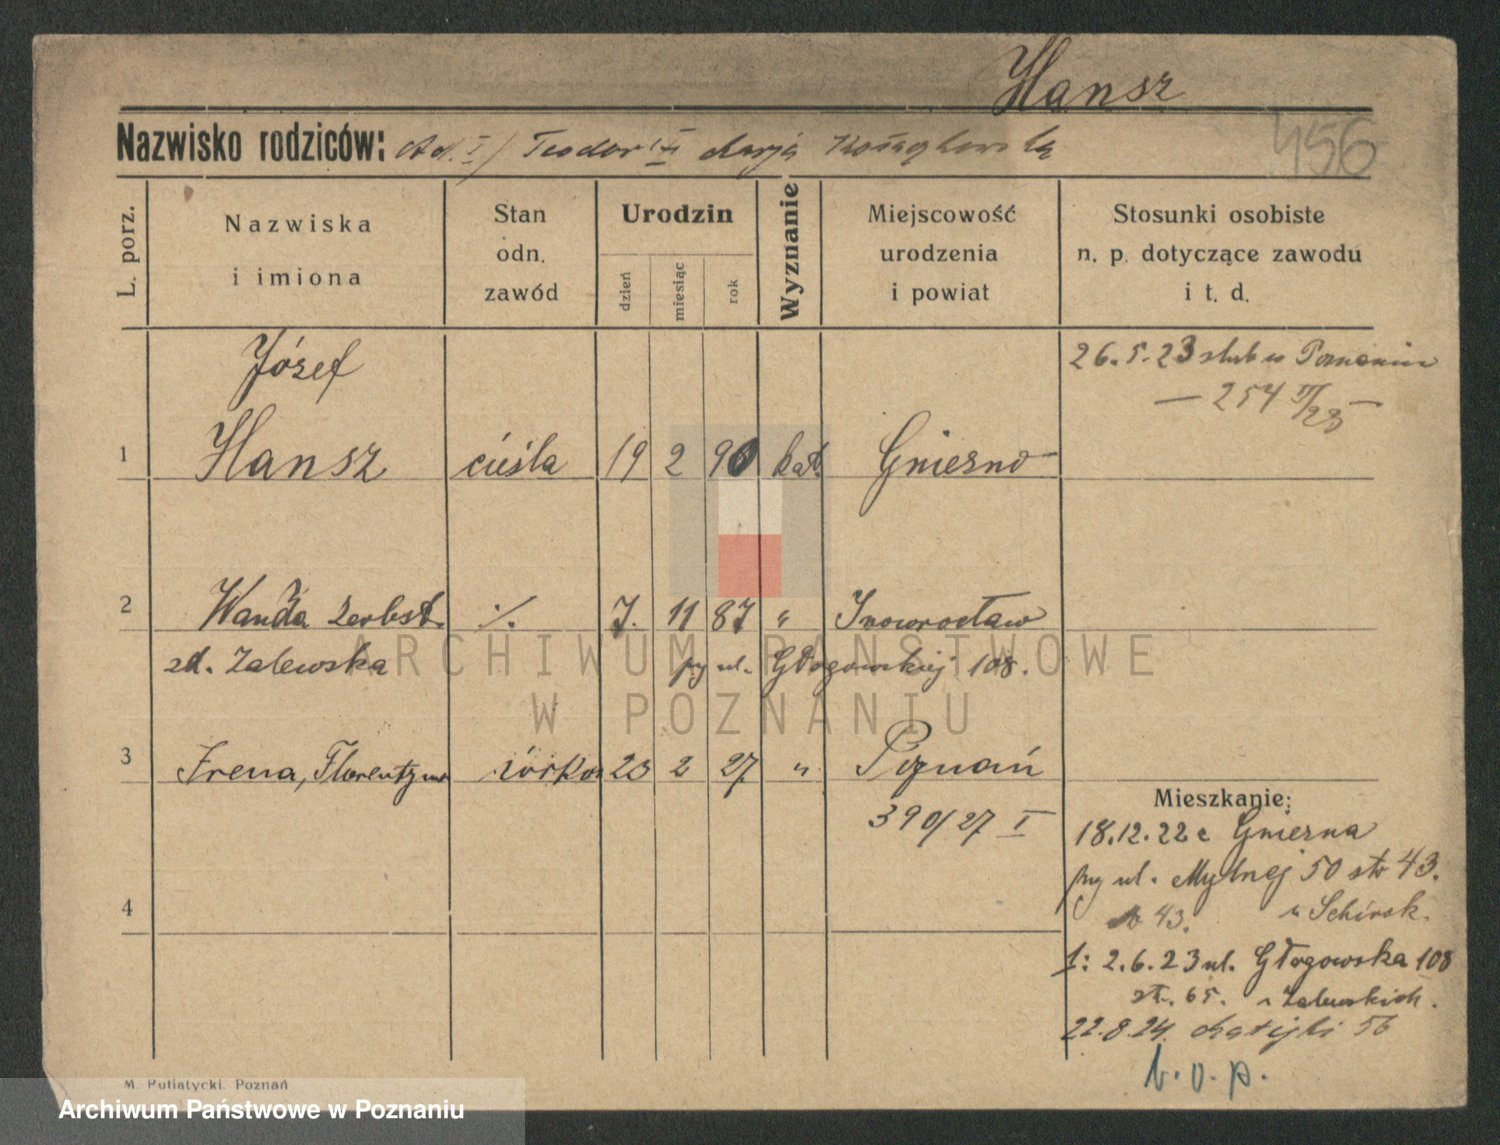 Hansz
Nazwisko rodziców: Ad. I / Teodor II Marja
456
L. porz.
Nazwiska i imiona
Stan odn. zawód
Urodzin
dzień
miesiąc
rok
Wyznanie
Miejscowość urodzenia i powiat
Stosunki osobiste n. p. dotyczące zawodu i t. d.
26.5.23 ślub w Poznaniu
— 254 II/23 —
Józef
1 Hansz cieśla 19 2 90 kat. Gniezno
2 Wanda Zerbst. ·/. 7. 11 87 " Inowrocław
zd. Zalewska przy ul. Głogowskiej 108.
3 Irena, Florentyna córka 23 2 27 " Poznań
390/27 I
4
Mieszkanie:
18.12.22 z Gniezna
przy ul. Mylnej 50 str 43.
43. u Schirok.
1: 2.6.23 ul. Głogowska 108
str. 65. u Zalewskich.
22.8.24. Matejki 56
b.o.p.
M. Putiatycki. Poznań
ARCHIWUM PAŃSTWOWE
W POZNANIU
Archiwum Państwowe w Poznaniu